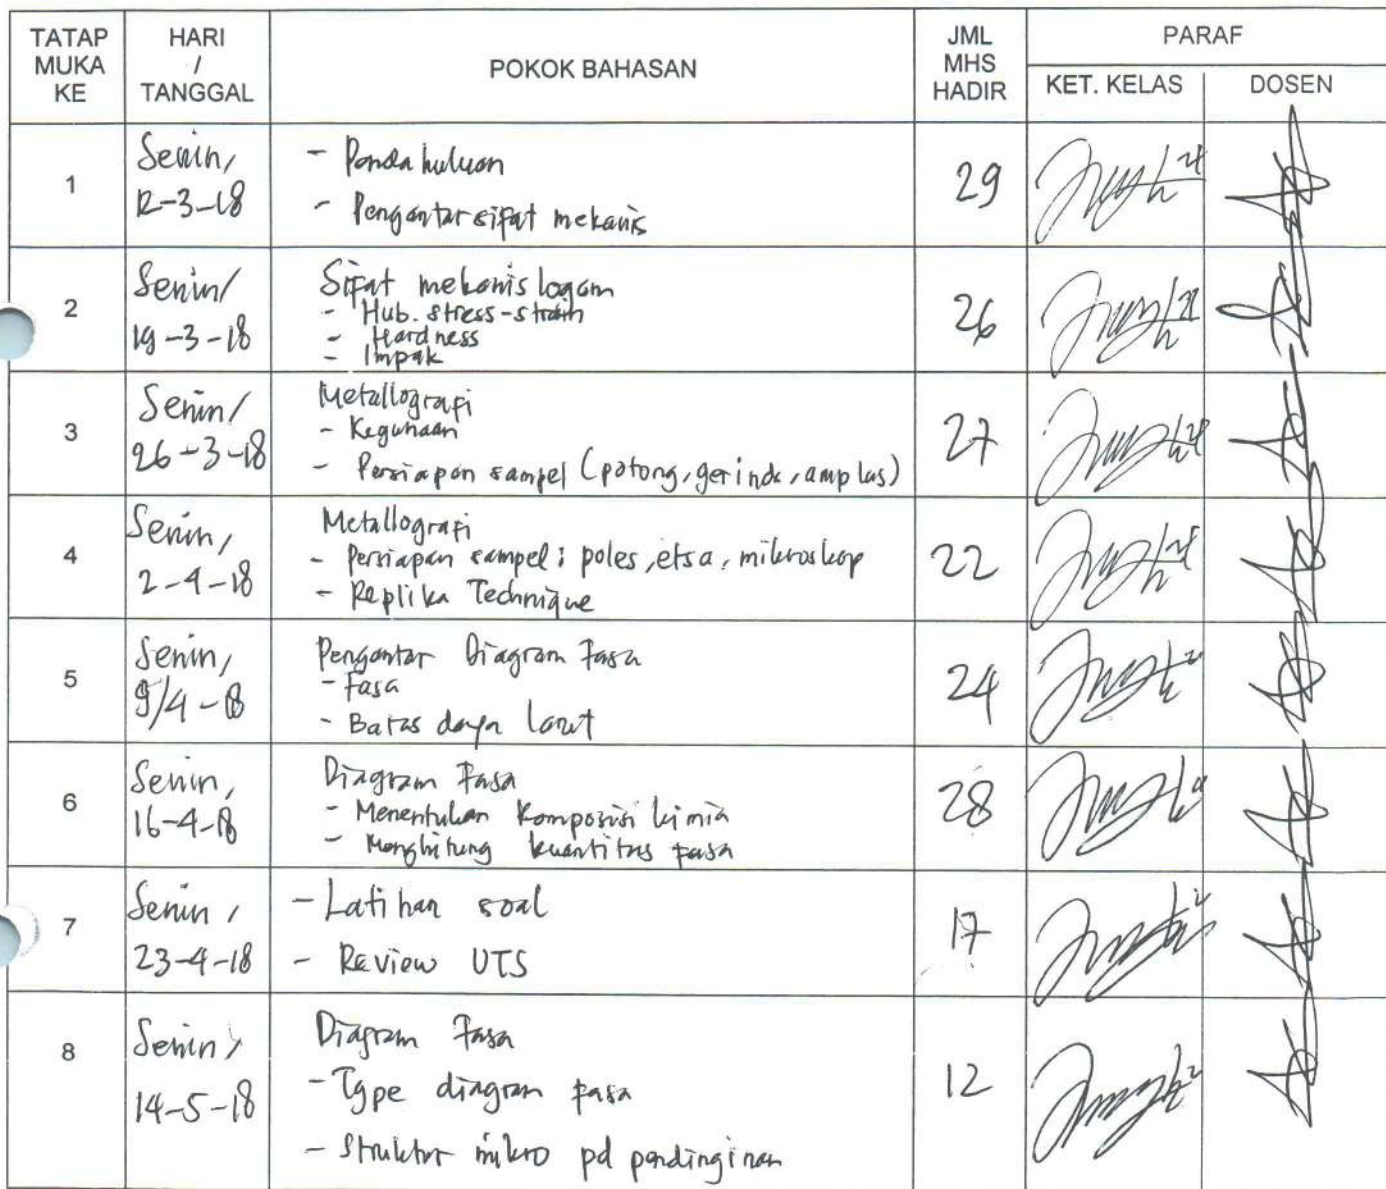 TATAP MUKA KE
HARI / TANGGAL
POKOK BAHASAN
JML MHS HADIR
PARAF
KET. KELAS
DOSEN
1
Senin,
12-3-18
- Pendahuluan
- Pengantar sifat mekanis
29
2
Senin/
19-3-18
Sifat mekanis logam
- Hub. stress-strain
- Hardness
- Impak
26
3
Senin/
26-3-18
Metallografi
- Kegunaan
- Persiapan sampel (potong, gerinda, amplas)
27
4
Senin,
2-4-18
Metallografi
- Persiapan sampel: poles, etsa, mikroskop
- Replika Technique
22
5
Senin,
9/4-18
Pengantar Diagram Fasa
- Fasa
- Batas daya larut
24
6
Senin,
16-4-18
Diagram Fasa
- Menentukan Komposisi kimia
- Menghitung kuantitas fasa
28
7
Senin,
23-4-18
- Latihan soal
- Review UTS
17
8
Senin,
14-5-18
Diagram Fasa
- Type diagram fasa
- Struktur mikro pd pendinginan
12